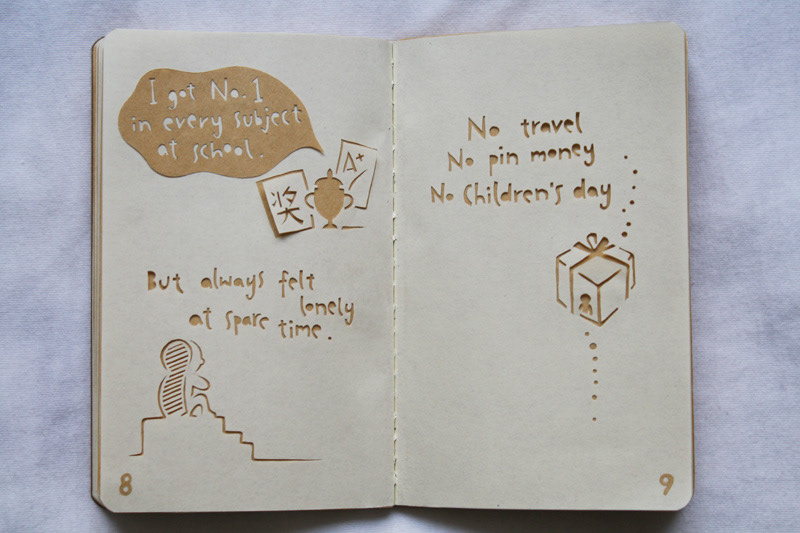 I got No.1
in every subject
at school.
A+
奖
But always felt
lonely
at spare time.
8
No travel
No pin money
No Children's day
9